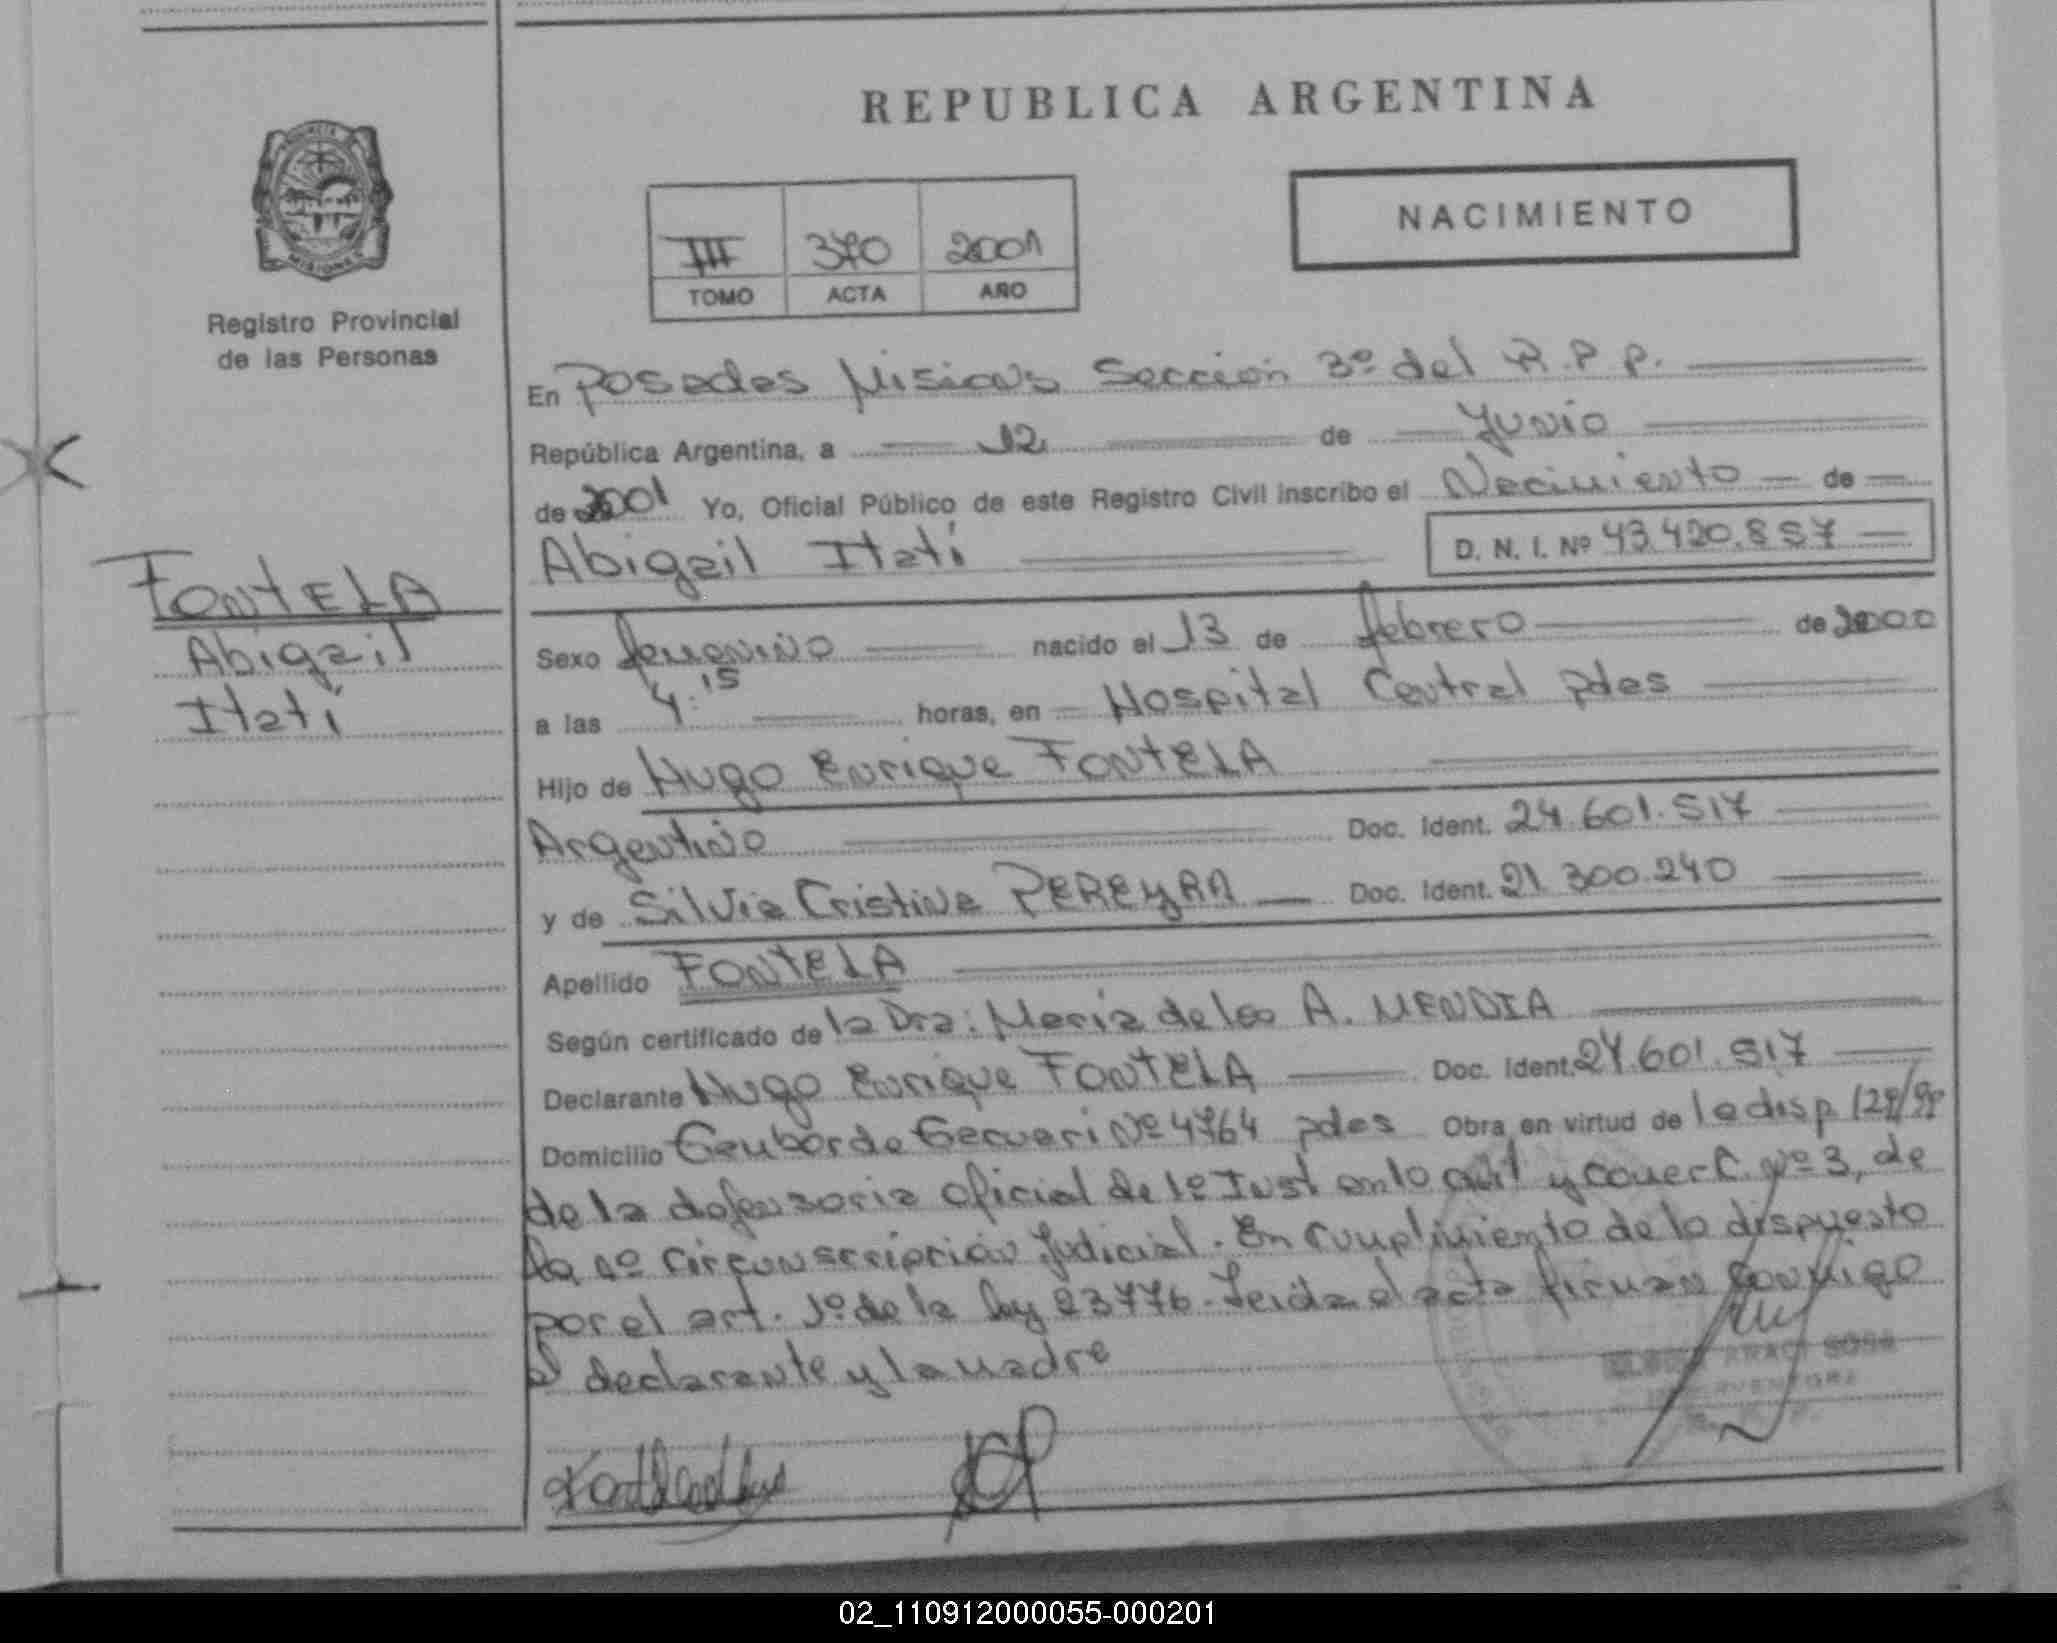 REPUBLICA ARGENTINA
NACIMIENTO
III 370 2001
TOMO ACTA AÑO
MISIONES
Registro Provincial
de las Personas
En Posadas Misiones Sección 3º del R.P.P.
República Argentina, a 12 de Junio
de 2001 Yo, Oficial Público de este Registro Civil inscribo el Nacimiento de
Abigail Itatí D. N. I. Nº 43.420.857
FONTELA
Abigail
Itatí
Sexo femenino nacido el 13 de febrero de 2000
a las 4:15 horas, en Hospital Central pdas
Hijo de Hugo Enrique FONTELA
Argentino Doc. Ident. 24.601.517
y de Silvia Cristina PEREYRA Doc. Ident. 21.300.240
Apellido FONTELA
Según certificado de la Dra: María de los A. MENDIA
Declarante Hugo Enrique FONTELA Doc. Ident. 24.601.517
Domicilio Nº 4764 pdas Obra en virtud de la disp
de la defensoria oficial de 1º Inst en lo civil y comerc. Nº 3, de
la circunscripción Judicial. En cumplimiento de lo dispuesto
por el art. 1º de la ley 23776. Leida el acta firman conmigo
el declarante y la madre
SOSA
INTERVENTORA
02_110912000055-000201